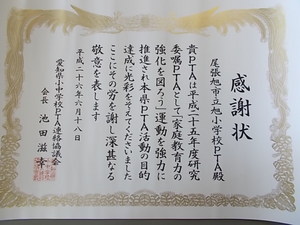 感謝状
尾張旭市立旭小学校PTA殿
貴PTAは平成二十五年度研究
委嘱PTAとして「家庭教育力の
強化を図ろう」運動を強力に
推進され本県PTA活動の目的
達成に光彩をそえてくださいました
ここにその労を謝し深甚なる
敬意を表します
平成二十六年六月十八日
愛知県小中学校PTA連絡協議会
会長 池田滋幸